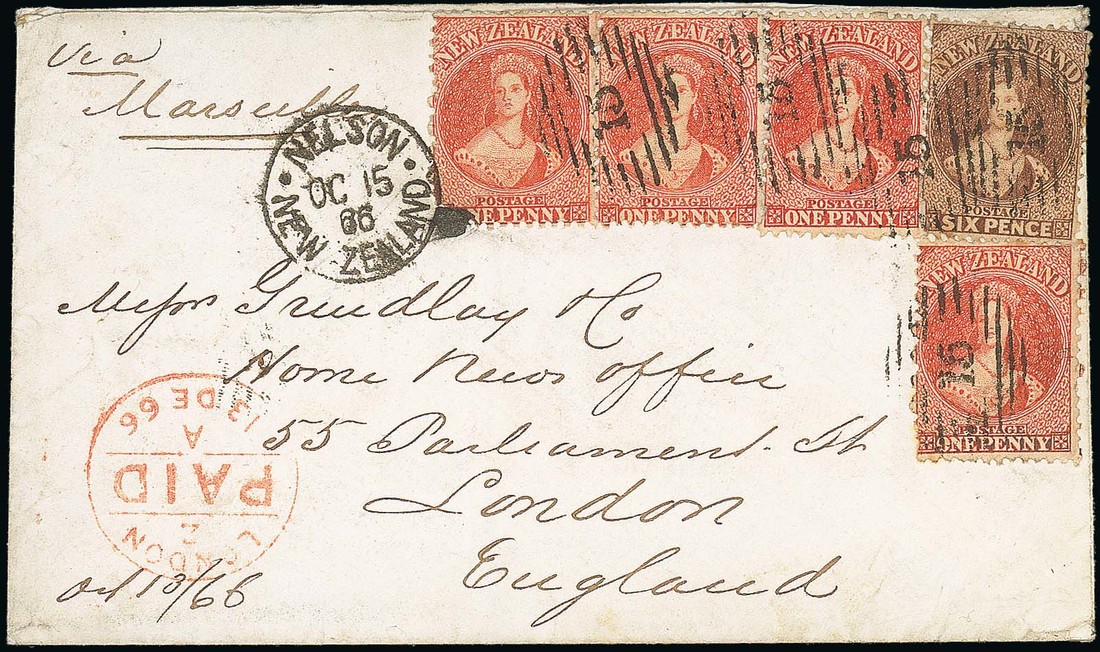 via
Marseilles
NEW ZEALAND
POSTAGE
ONE PENNY
NEW ZEALAND
POSTAGE
ONE PENNY
15
NEW ZEALAND
POSTAGE
ONE PENNY
15
NEW ZEALAND
POSTAGE
SIX PENCE
15
NELSON
OC 15
66
NEW ZEALAND
NEW ZEALAND
POSTAGE
ONE PENNY
15
Messrs Grindlay & Co
Home News office
55 Parliament St
London
England
LONDON
Z
PAID
A
13 DE 66
Oct 13/66